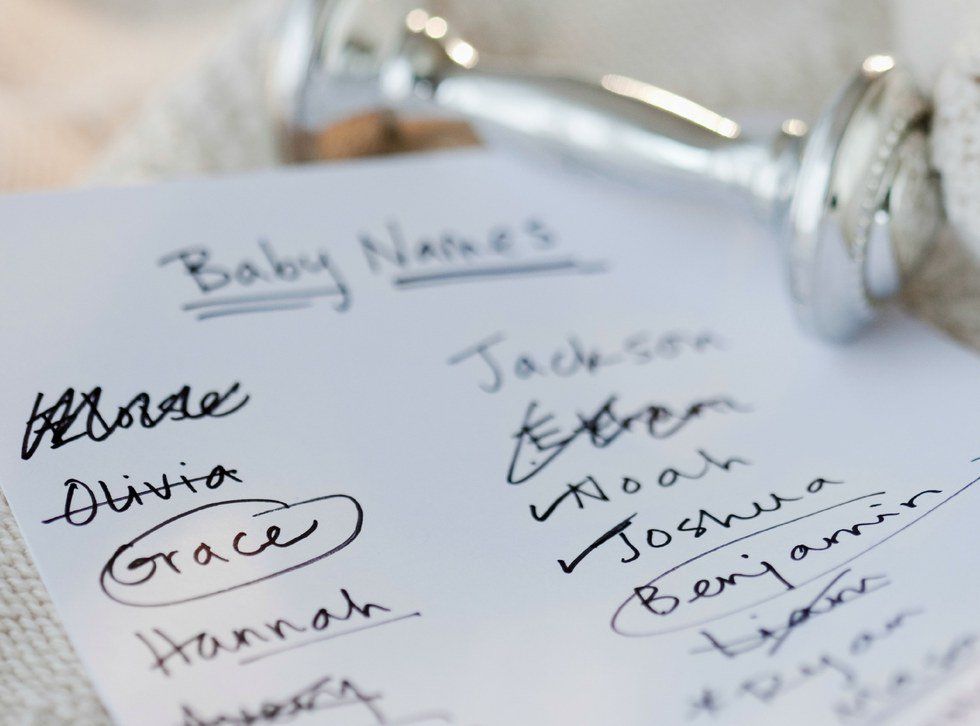 Baby Names
Olivia
Grace
Hannah
Avery
Jackson
Ethan
Noah
Joshua
Benjamin
Liam
* Ryan
Mason